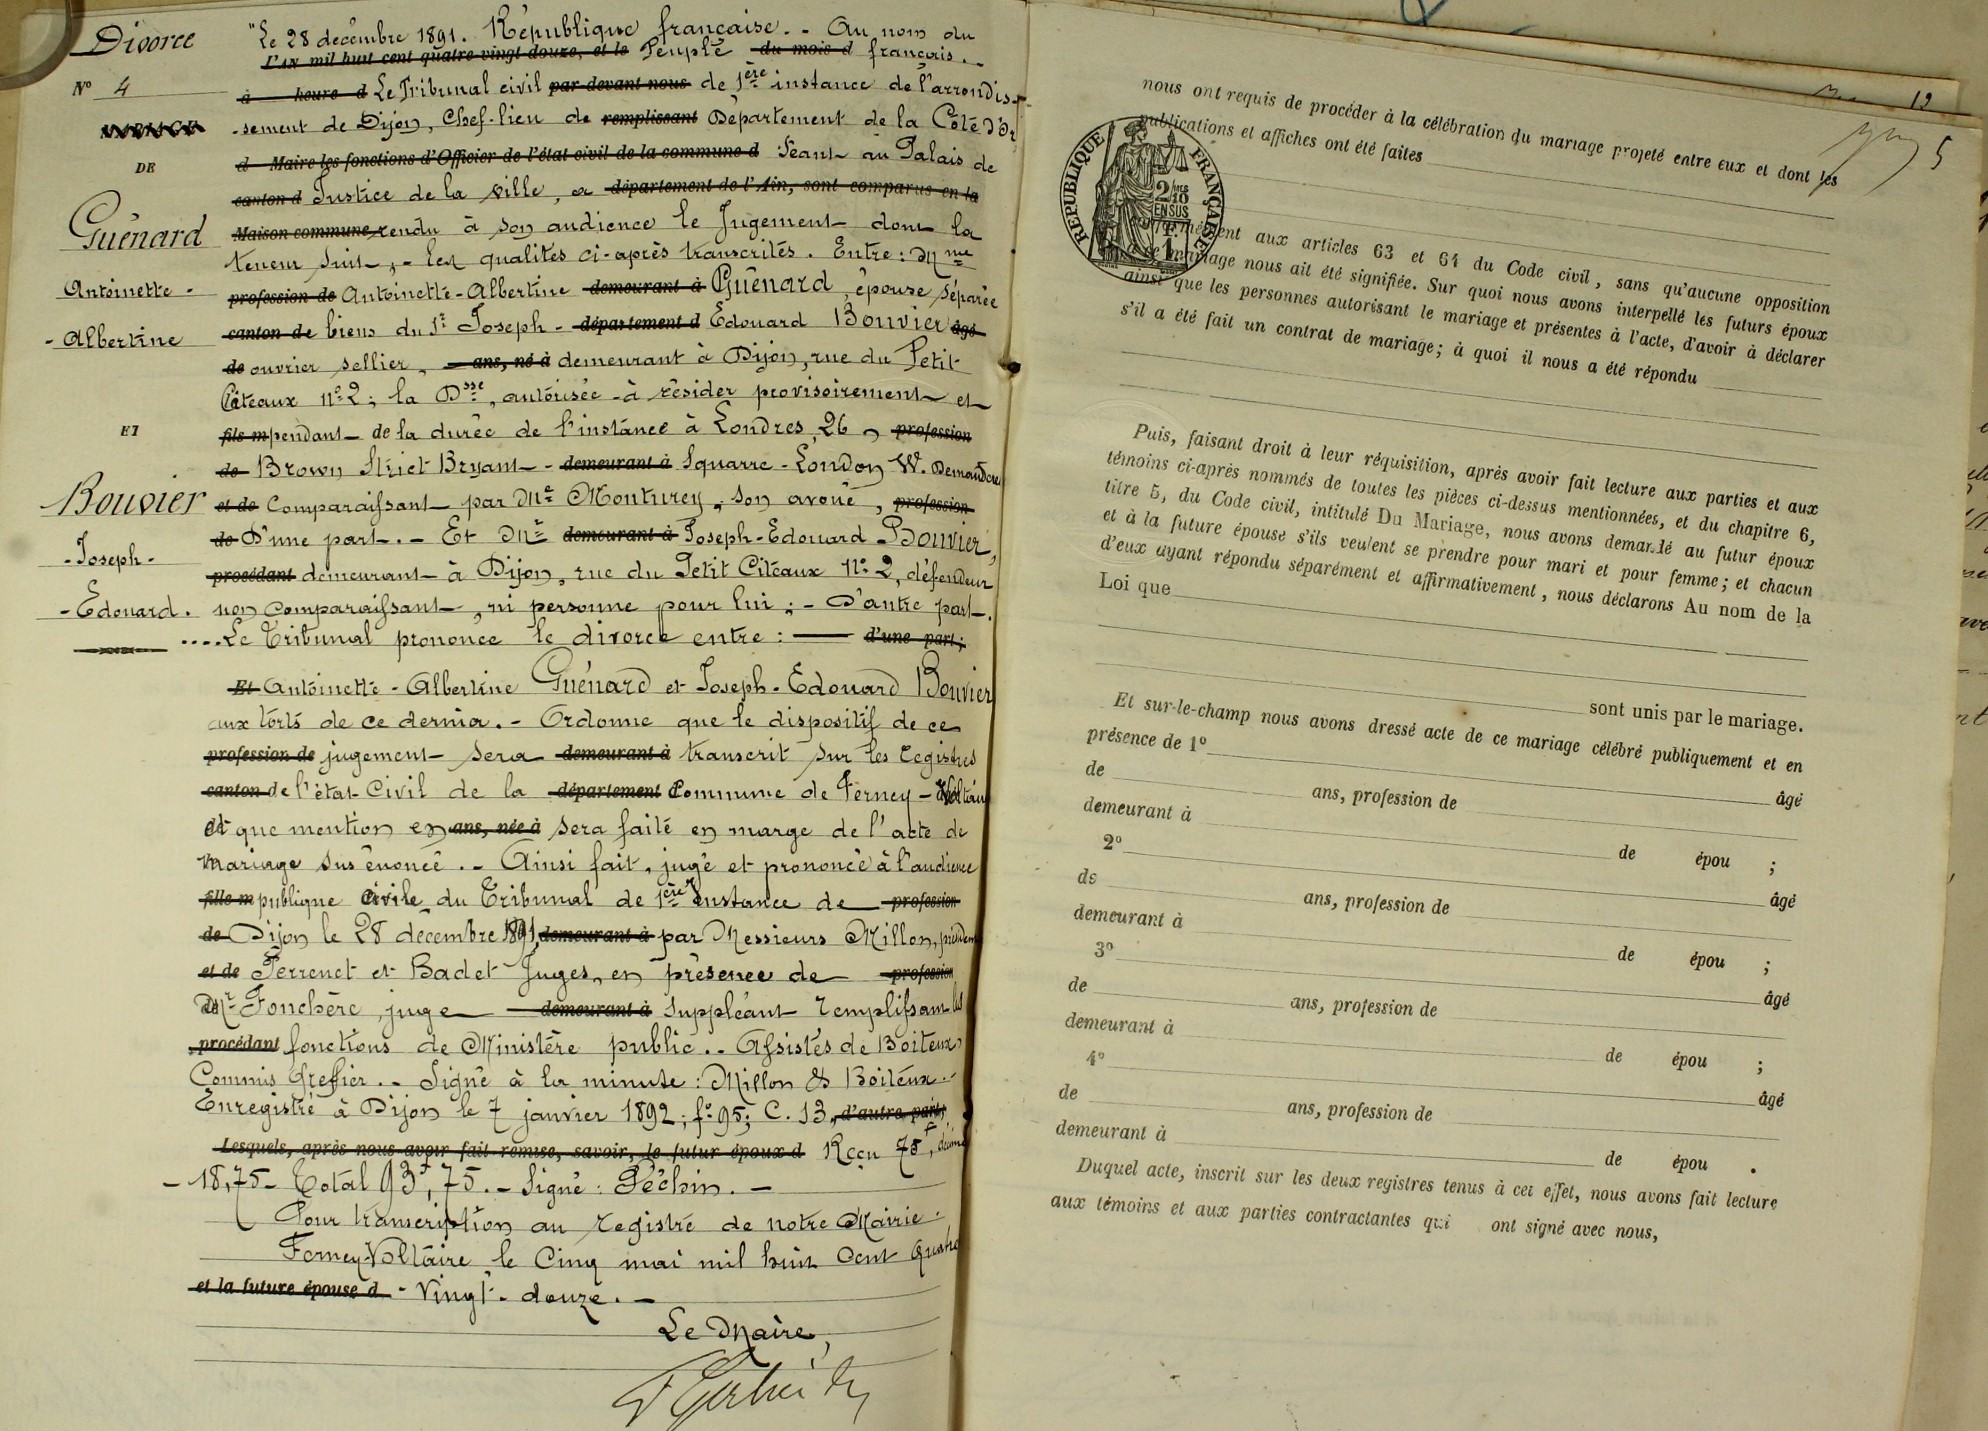 Divorce
N° 4
MARIAGE
DE
Guénard
Antoinette -
- Albertine
ET
Bouvier
- Joseph -
- Edouard.
"Le 28 décembre 1891. République française. - Au nom du
L'AN mil huit cent quatre vingt-douze, et le Peuple du mois d français. -
à heure d Le Tribunal civil par-devant nous de 1ère instance de l'arrondis-
-sement de Dijon, Chef-lieu de remplissant Département de la Côte d'Or
d Maire les fonctions d'Officier de l'état civil de la commune d Séant au Palais de
canton d Justice de la ville, a département de l'Ain, sont comparus en la
Maison commune, rendu à son audience le Jugement dont la
teneur suit, - les qualités ci-après transcrites. Entre: Mme
profession de Antoinette-Albertine demeurant à Guénard, épouse séparée
canton de biens du Sr Joseph - département d Edouard Bouvier âgé
de ouvrier sellier, ans, né à demeurant à Dijon, rue du Petit
Citeaux n° 2; la Dsse, autorisée à résider provisoirement et
fils m pendant de la durée de l'instance à Londres, 26, profession
de Brown Striet Bryant - demeurant à Squarre - London W. Demanderesse
et de Comparaissant par Me Monturey, son avoué, profession
de D'une part. - Et Mr demeurant à Joseph-Edouard Bouvier,
procédant demeurant à Dijon, rue du Petit Citeaux n° 2, défendeur
non comparaissant, ni personne pour lui; - D'autre part.
....Le Tribunal prononce le divorce entre: — d'une part;
Et Antoinette - Albertine Guénard et Joseph - Edouard Bouvier
aux torts de ce dernier. - Ordonne que le dispositif de ce
profession de jugement sera demeurant à transcrit sur les registres
canton de l'état-Civil de la département Commune de Ferney - Voltaire
et que mention en ans, née à sera faite en marge de l'acte de
mariage sus énoncé. - Ainsi fait, jugé et prononcé à l'audience
fille m publique civile du Tribunal de 1ère Instance de profession
de Dijon le 28 décembre 1891, demeurant à par Messieurs Millon, président
et de Perrenet et Badet Juges, en présence de profession
de Mr Fonchère, juge demeurant à suppléant remplissant les
procédant fonctions de Ministère public. - Assistés de Boiteux,
Commis Greffier. - Signé à la minute: Millon & Boiteux. -
Enregistré à Dijon le 7 janvier 1892; f° 95; C. 13, d'autre part;
Lesquels, après nous avoir fait remise, savoir, le futur époux d Reçu 75f, décime
- 18,75 - Total 93f,75. - Signé: Péchin. -
Pour transcription au registre de notre Mairie.
Ferney-Voltaire, le Cinq mai mil huit Cent quatre
et la future épouse d - Vingt - douze. -
Le Maire,
12
5
nous ont requis de procéder à la célébration du mariage projeté entre eux et dont les
publications et affiches ont été faites
RÉPUBLIQUE FRANÇAISE
2/10
EN SUS
1
ment aux articles 63 et 64 du Code civil, sans qu'aucune opposition
mariage nous ait été signifiée. Sur quoi nous avons interpellé les futurs époux
ainsi que les personnes autorisant le mariage et présentes à l'acte, d'avoir à déclarer
s'il a été fait un contrat de mariage; à quoi il nous a été répondu
Puis, faisant droit à leur réquisition, après avoir fait lecture aux parties et aux
témoins ci-après nommés de toutes les pièces ci-dessus mentionnées, et du chapitre 6,
titre 5, du Code civil, intitulé Du Mariage, nous avons demandé au futur époux
et à la future épouse s'ils veulent se prendre pour mari et pour femme; et chacun
d'eux ayant répondu séparément et affirmativement, nous déclarons Au nom de la
Loi que
sont unis par le mariage.
Et sur-le-champ nous avons dressé acte de ce mariage célébré publiquement et en
présence de 1°
âgé
de ans, profession de
demeurant à
de épou ;
2°
âgé
de ans, profession de
demeurant à
de épou ;
3°
âgé
de ans, profession de
demeurant à
de épou ;
4°
âgé
de ans, profession de
demeurant à
de épou .
Duquel acte, inscrit sur les deux registres tenus à cet effet, nous avons fait lecture
aux témoins et aux parties contractantes qui ont signé avec nous,